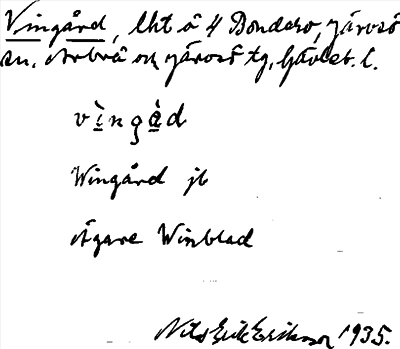 Vingård, lht å 4 Bondarv, Järvsö
sn, Arbrå och Järvsö tg, Gävleb. l.
vìngàd
Wingård jb
Ägare Winblad
Nils Erik Eriksson 1935.